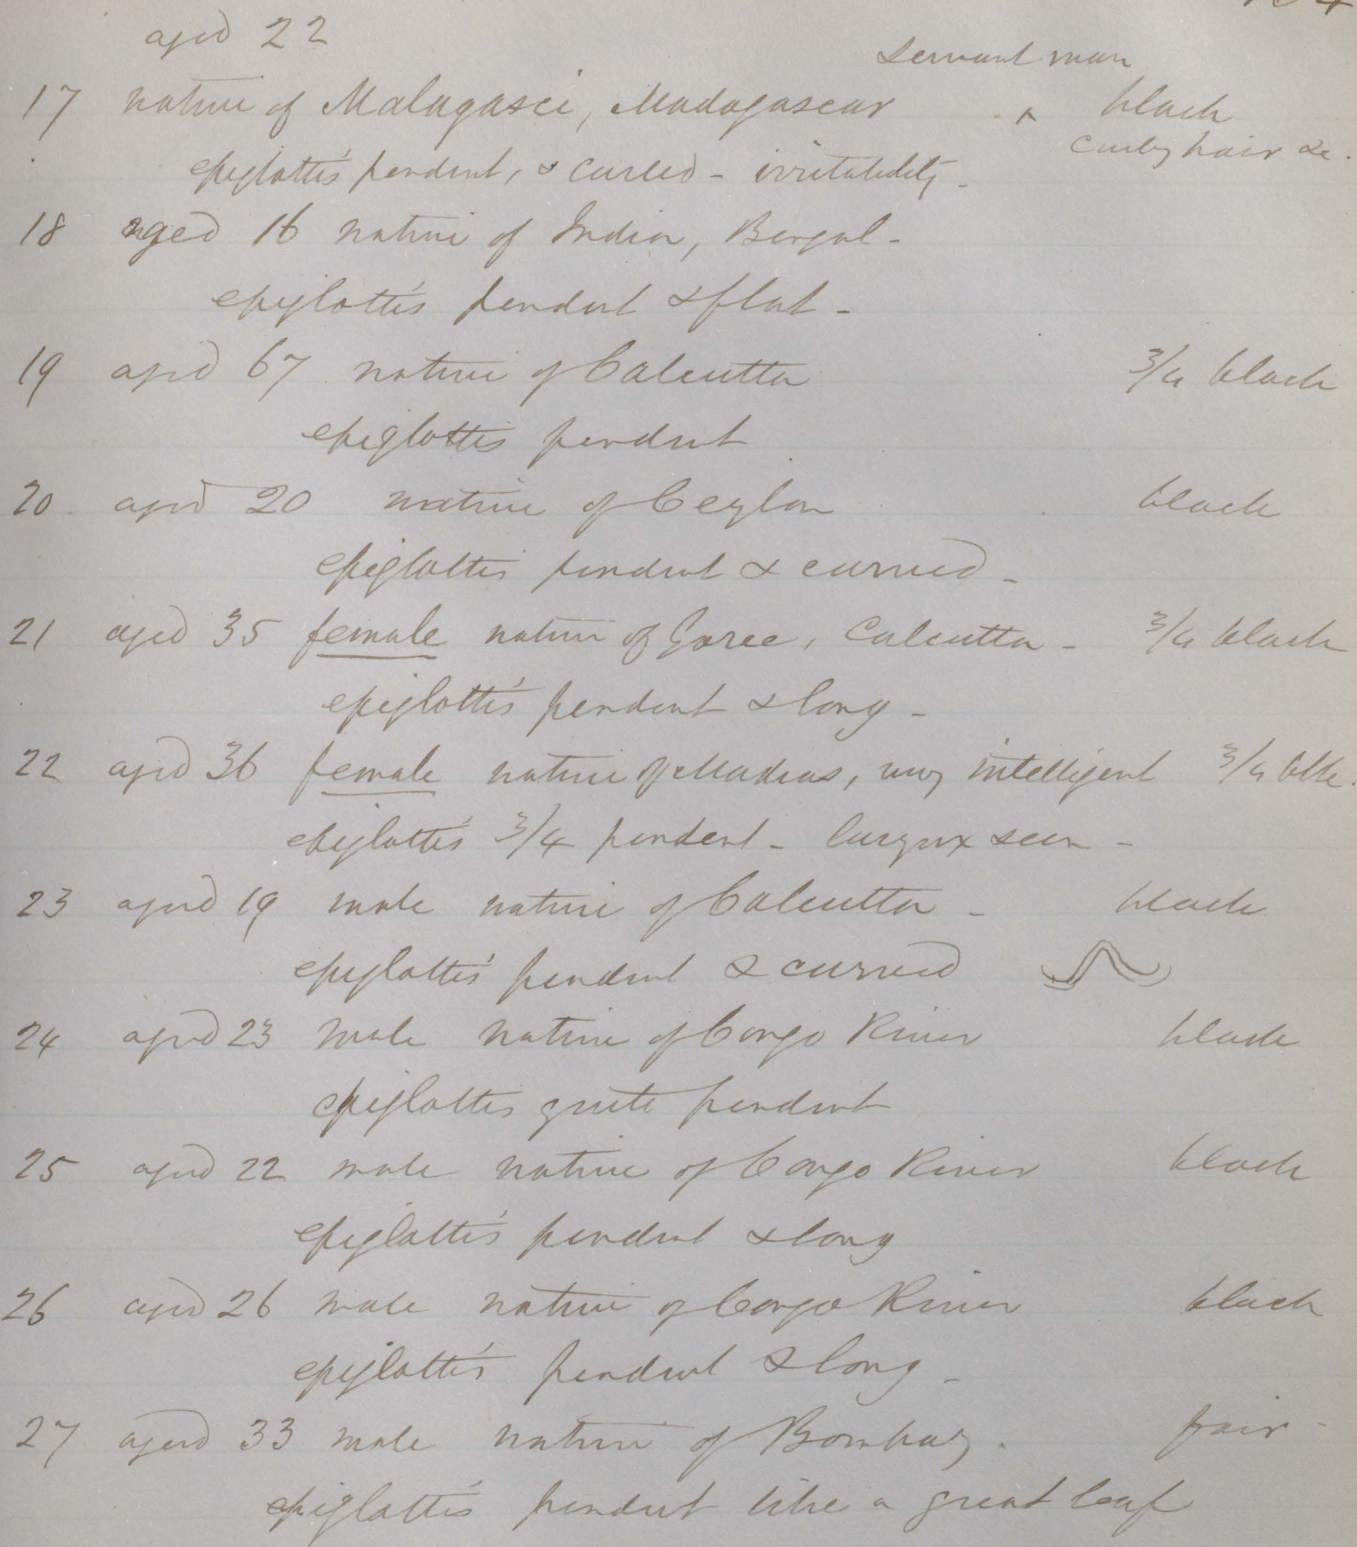 aged 22
servant man
17 native of Malagasci, Madagascar black
curly hair &c.
epiglottis pendent, & curled - irritability -
18 aged 16 native of India, Bengal -
epiglottis pendent & flat -
19 aged 67 native of Calcutta 3/4 black
epiglottis pendent
20 aged 20 native of Ceylon black
epiglottis pendent & curved -
21 aged 35 female native of Goree, Calcutta - 3/4 black
epiglottis pendent & long -
22 aged 36 female native of Madras, very intelligent 3/4 blk.
epiglottis 3/4 pendent - larynx seen -
23 aged 19 male native of Calcutta - black
epiglottis pendent & curved
24 aged 23 male native of Congo River black
epiglottis quite pendent
25 aged 22 male native of Congo River black
epiglottis pendent & long
26 aged 26 male native of Congo River black
epiglottis pendent & long -
27 aged 33 male native of Bombay. fair -
epiglottis pendent like a great leaf